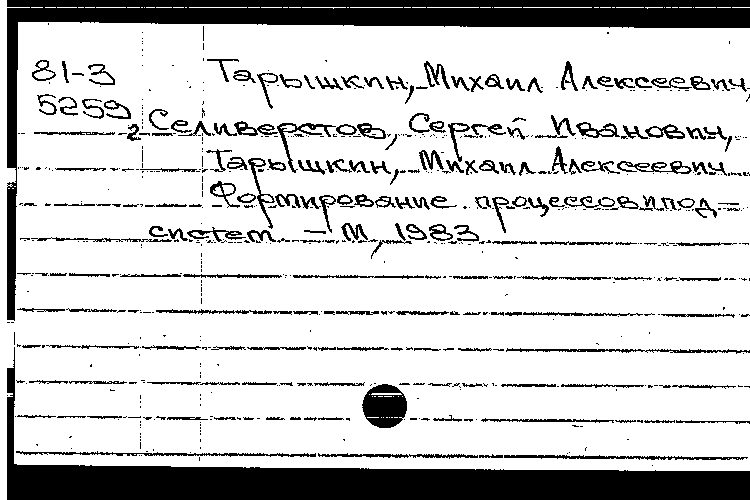 81-3 Тарышкин, Михаил Алексеевич,
5259₂ Селиверстов, Сергей Иванович,
Тарышкин, Михаил Алексеевич
Формирование процессов и под-
систем. – М, 1983